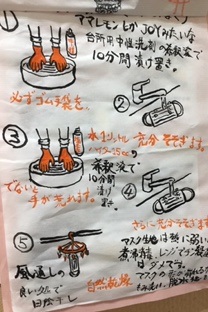 ママレモンとかJOYみたいな
台所用中性洗剤の希釈液で
10分間漬け置き。
必ずゴム手袋を
②
③
水1リットル
充分そそぎます。
希釈液で
10分間
漬け
置き
でないと
手が荒れます。
④
さらに充分そそぎます
⑤
マスク生地は熱に弱い
煮沸消毒、レンジでチン殺菌
はダメです。
風通しの
良い所で
日陰干し
自然乾燥